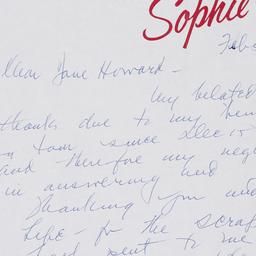 Sophie
Feb
Dear Jane Howard -
My belated
thanks due to my being
town since Dec 15
and therefore my negl
in answering and
thanking you and
Life - for the scrap
sent to me